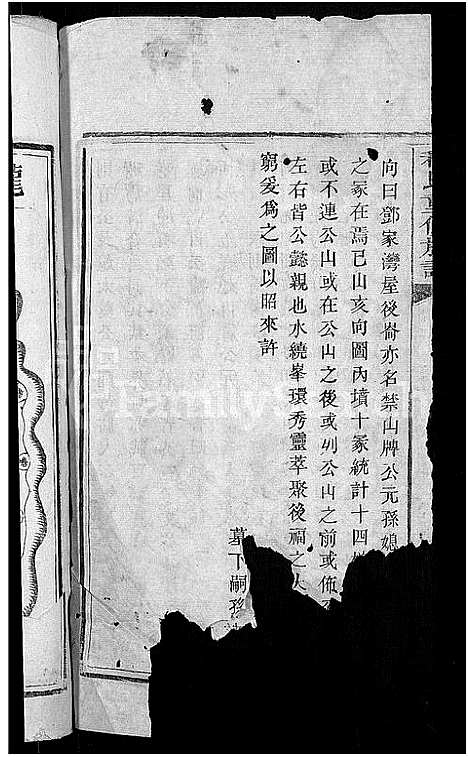 向曰鄧家灣屋後崙亦名禁山牌公元孫媳
之冢在焉巳山亥向圖內墳十冢統計十四
或不連公山或在公山之後或列公山之前或佈
左右皆公懿親也水繞峯環秀靈萃聚後福之大
窮爰爲之圖以昭來許
墓下嗣孫
龍